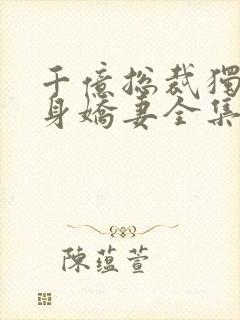 千億総裁獨
身嬌妻全集
陳蘊萱